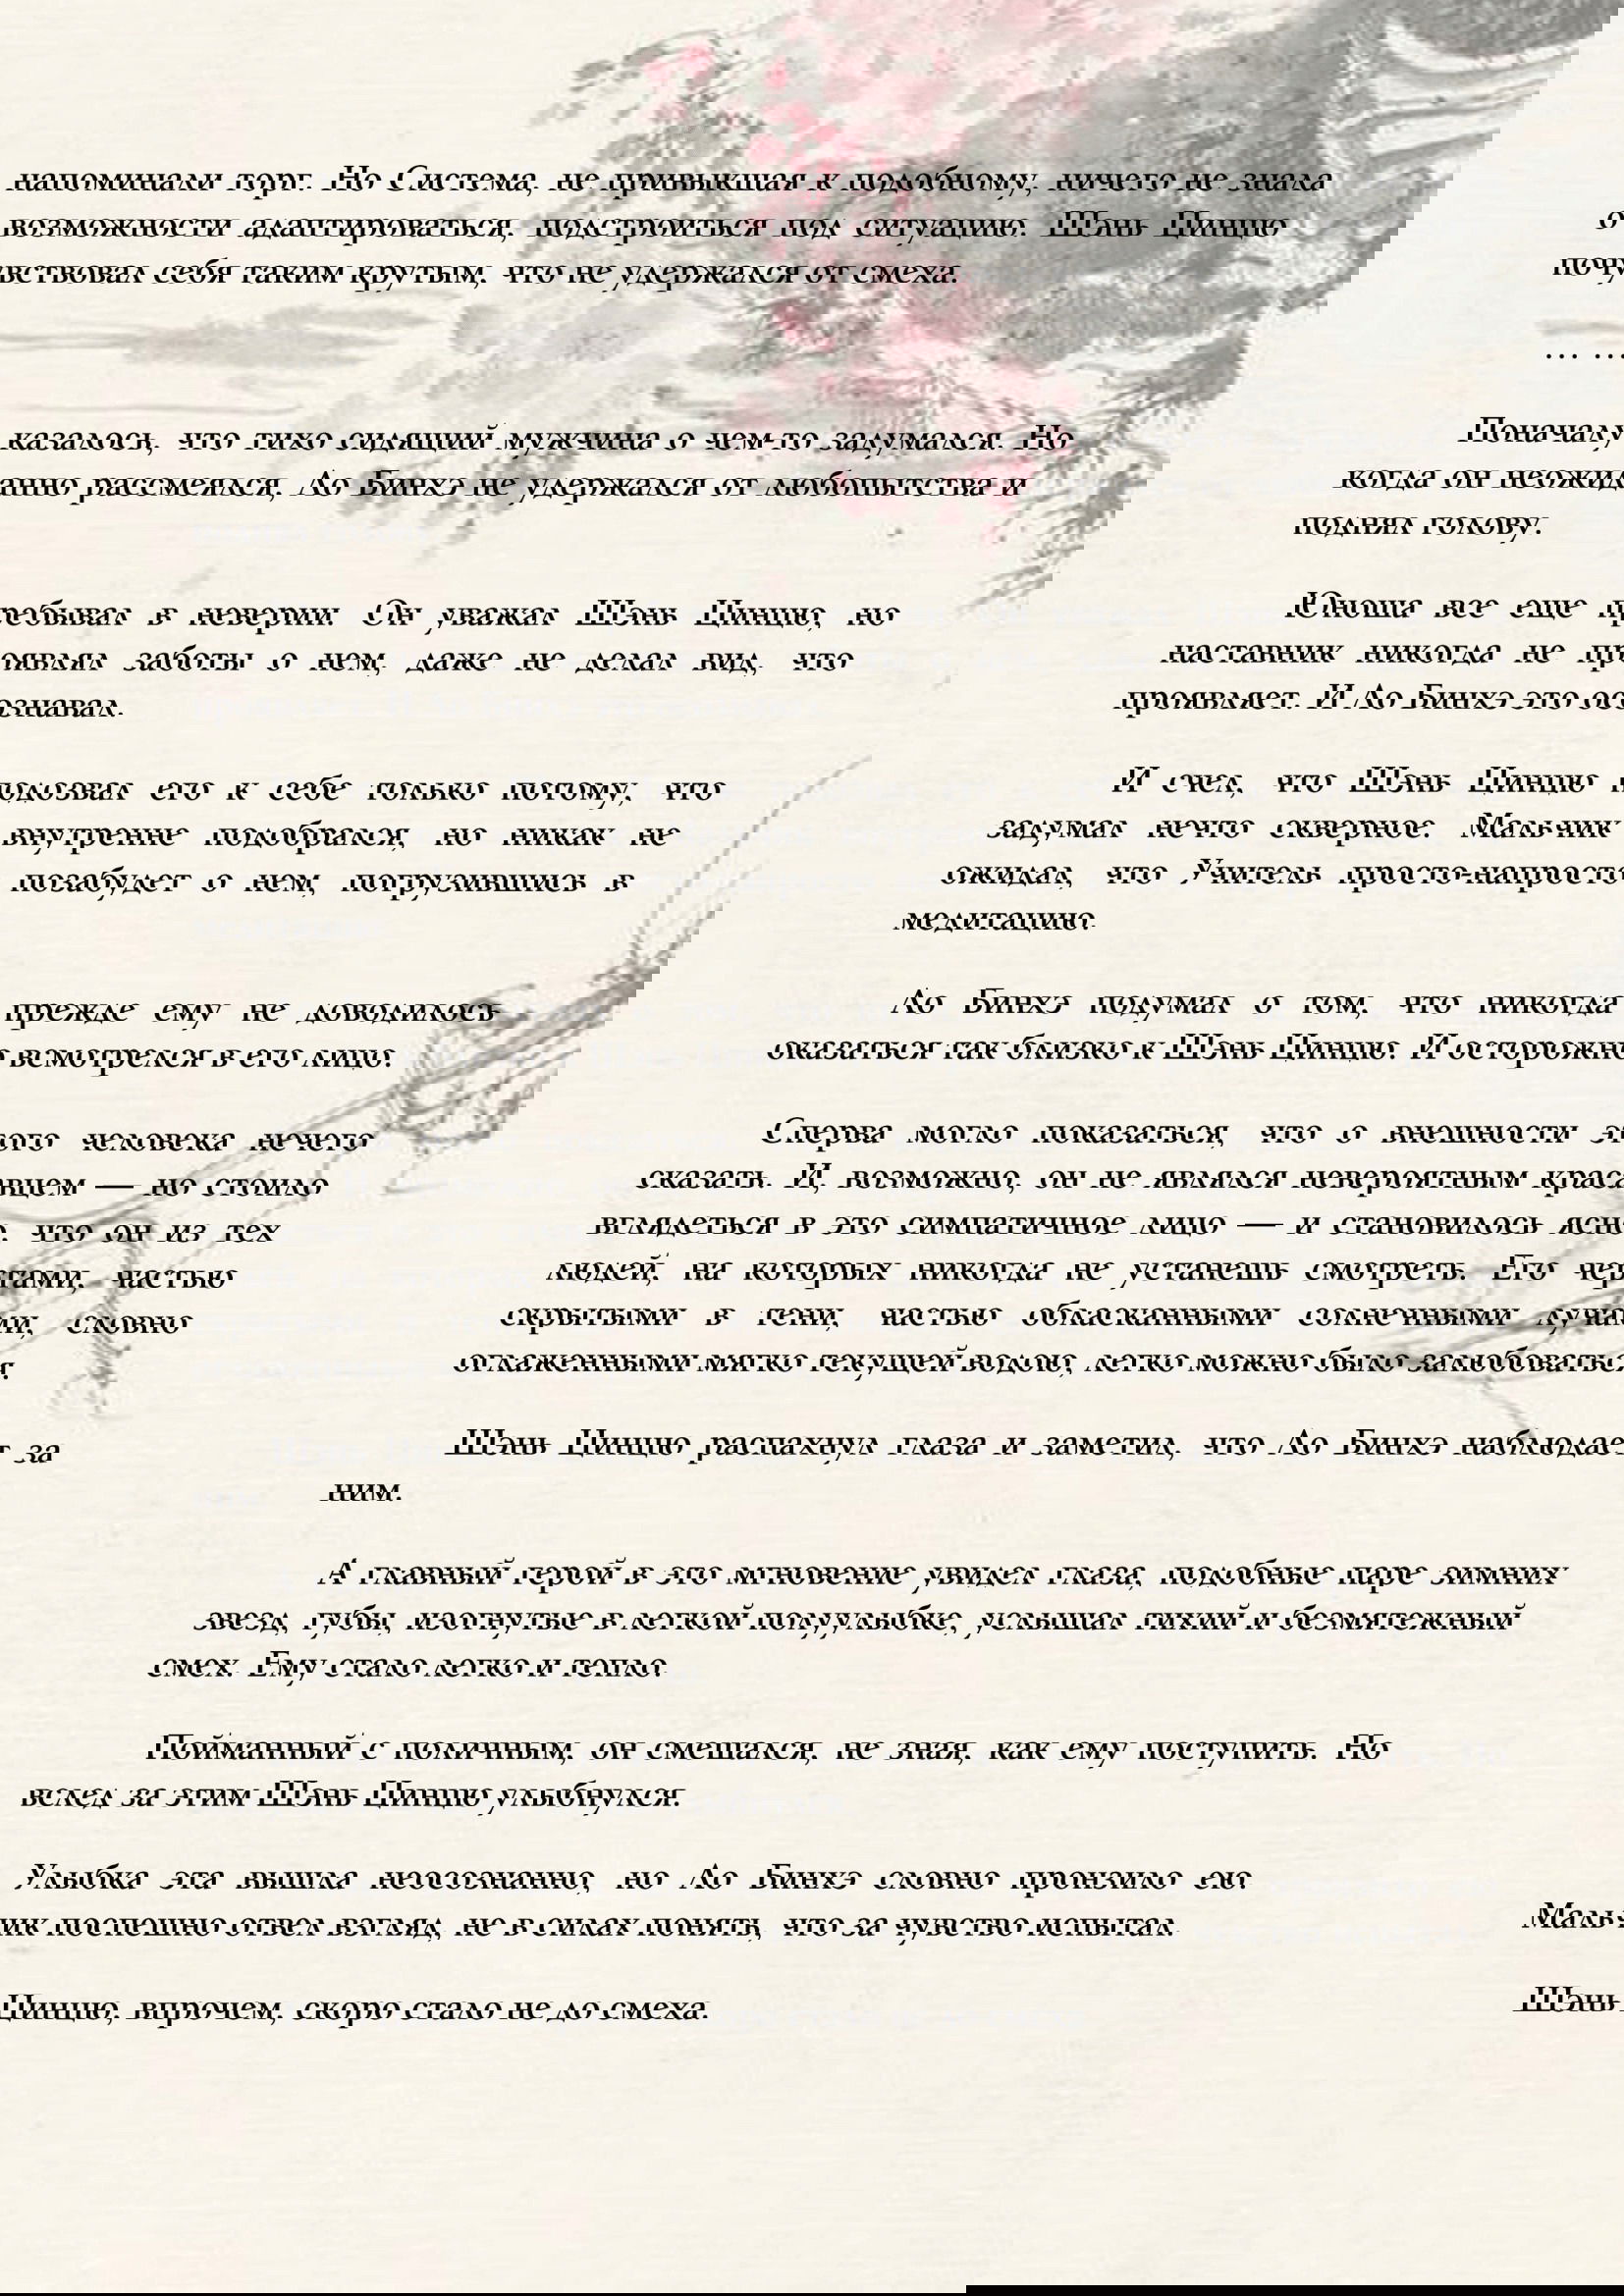 напоминали торг. Но Система, не привыкшая к подобному, ничего не знала
о возможности адаптироваться, подстроиться под ситуацию. Шэнь Цинцю
почувствовал себя таким крутым, что не удержался от смеха.
… …
Поначалу казалось, что тихо сидящий мужчина о чем-то задумался. Но
когда он неожиданно рассмеялся, Ло Бинхэ не удержался от любопытства и
поднял голову.
Юноша все еще пребывал в неверии. Он уважал Шэнь Цинцю, но
наставник никогда не проявлял заботы о нем, даже не делал вид, что
проявляет. И Ло Бинхэ это осознавал.
И счел, что Шэнь Цинцю подозвал его к себе только потому, что
задумал нечто скверное. Мальчик внутренне подобрался, но никак не
ожидал, что Учитель просто-напросто позабудет о нем, погрузившись в
медитацию.
Ло Бинхэ подумал о том, что никогда прежде ему не доводилось
оказаться так близко к Шэнь Цинцю. И осторожно всмотрелся в его лицо.
Сперва могло показаться, что о внешности этого человека нечего
сказать. И, возможно, он не являлся невероятным красавцем — но стоило
вглядеться в это симпатичное лицо — и становилось ясно, что он из тех
людей, на которых никогда не устанешь смотреть. Его чертами, частью
скрытыми в тени, частью обласканными солнечными лучами, словно
оглаженными мягко текущей водою, легко можно было залюбоваться.
Шэнь Цинцю распахнул глаза и заметил, что Ло Бинхэ наблюдает за
ним.
А главный герой в это мгновение увидел глаза, подобные паре зимних
звезд, губы, изогнутые в легкой полуулыбке, услышал тихий и безмятежный
смех. Ему стало легко и тепло.
Пойманный с поличным, он смешался, не зная, как ему поступить. Но
вслед за этим Шэнь Цинцю улыбнулся.
Улыбка эта вышла неосознанно, но Ло Бинхэ словно пронзило ею.
Мальчик поспешно отвел взгляд, не в силах понять, что за чувство испытал.
Шэнь Цинцю, впрочем, скоро стало не до смеха.